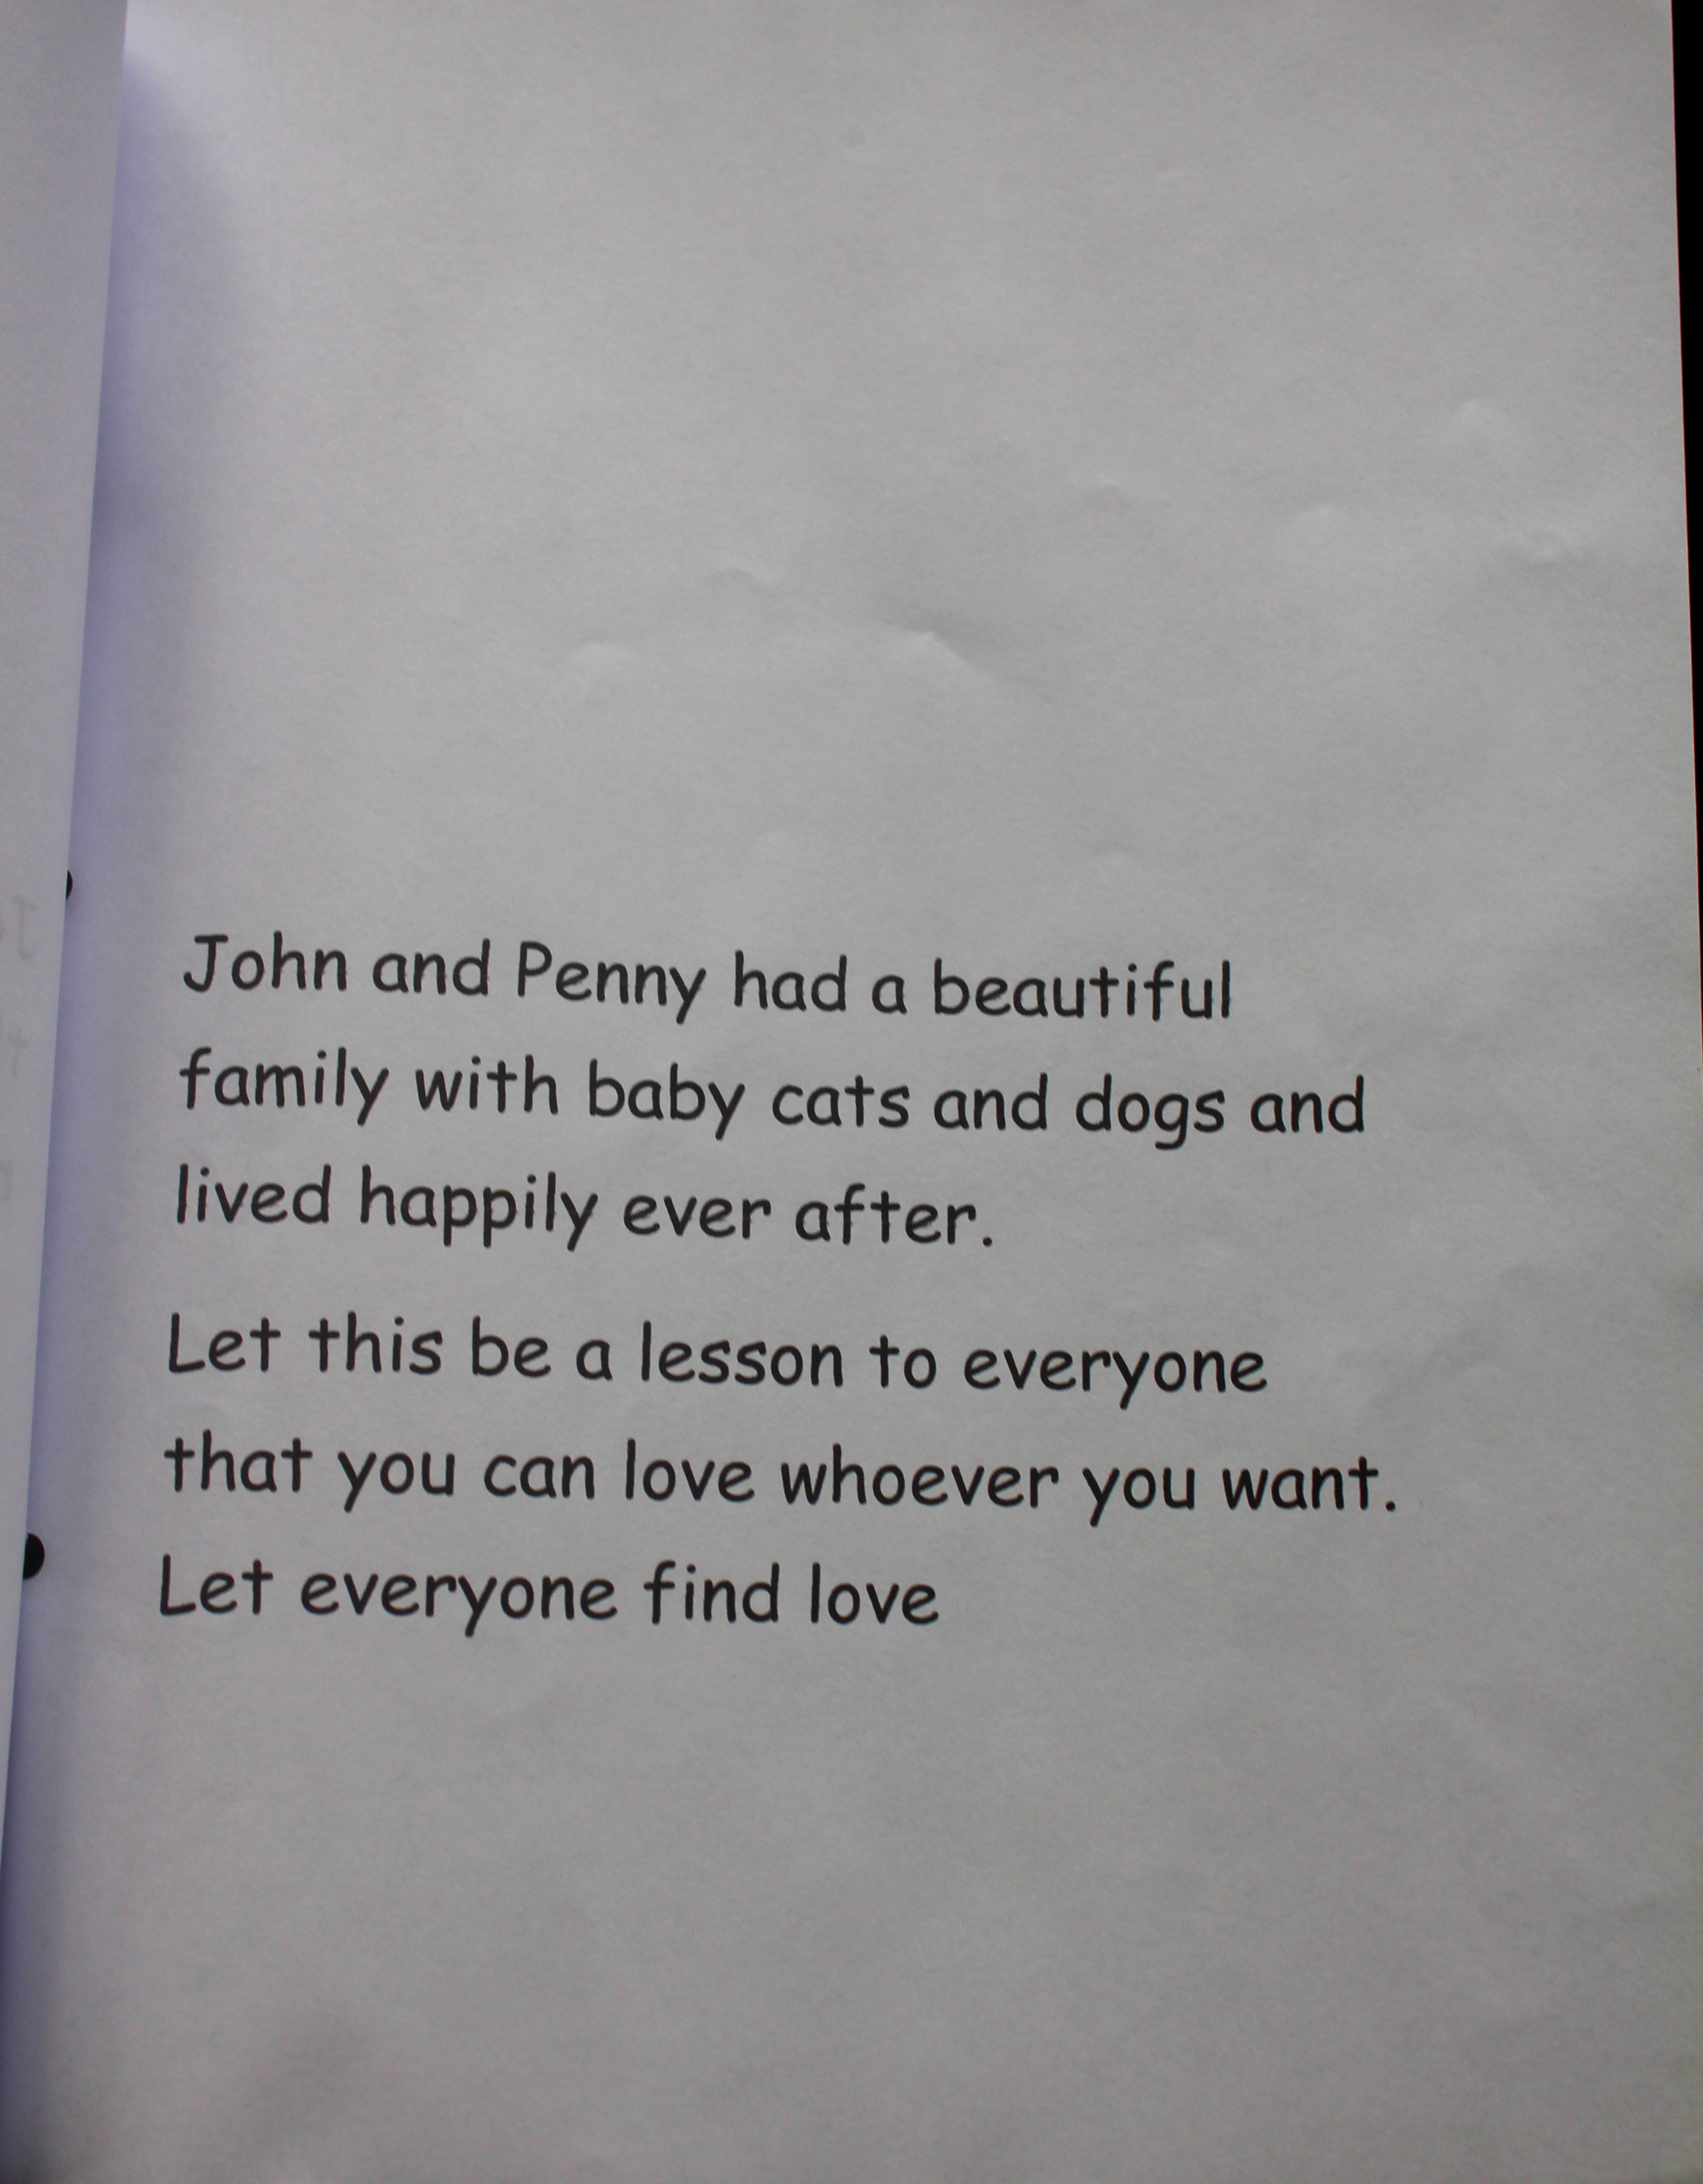 John and Penny had a beautiful
family with baby cats and dogs and
lived happily ever after.
Let this be a lesson to everyone
that you can love whoever you want.
Let everyone find love